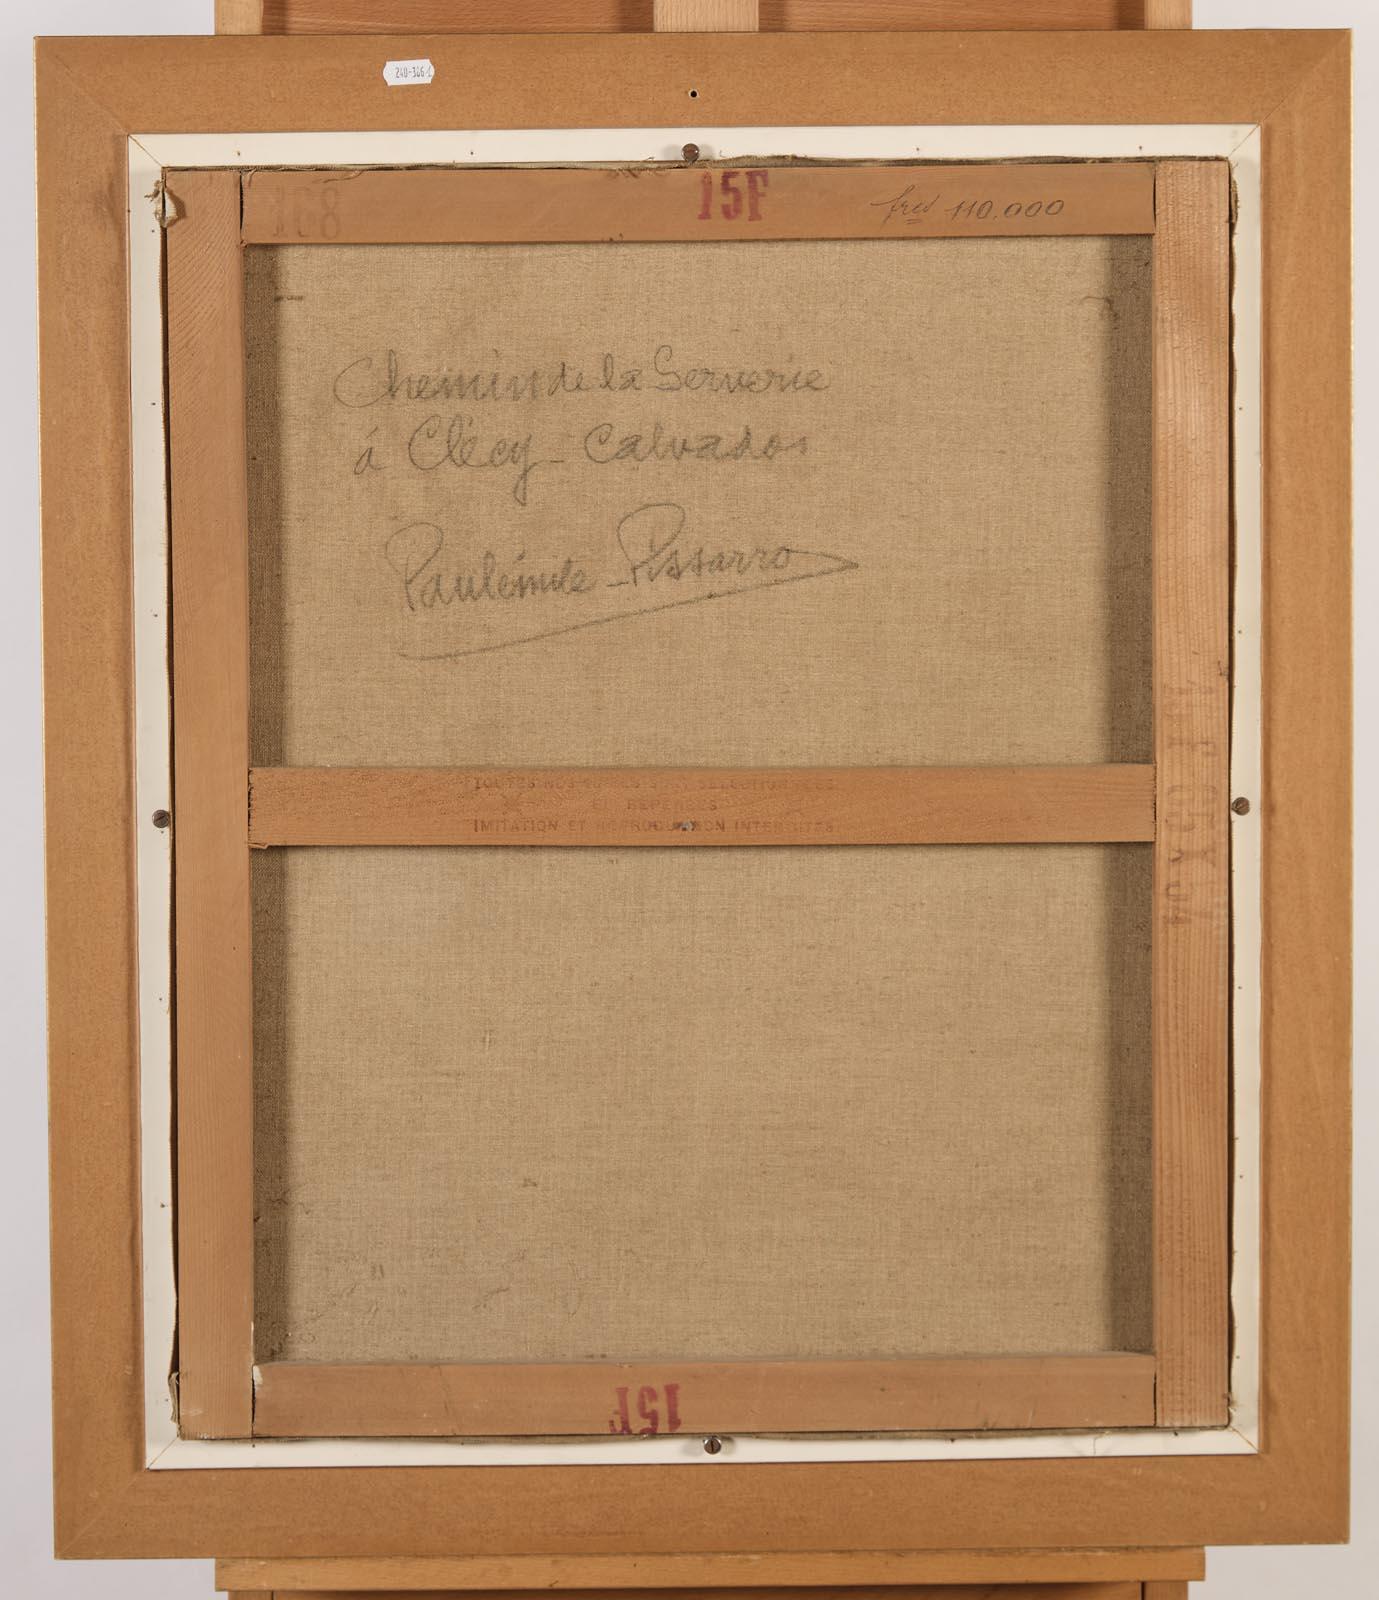 240-366-1
15F
fred 110.000
Chemin de la Serverie
à Clécy - Calvados
Paulémile - Pissarro
TOUTES NOS SONT SELECTIONNEES
ET REPEREES
IMITATION ET REPRODUCTION INTERDITES
15F